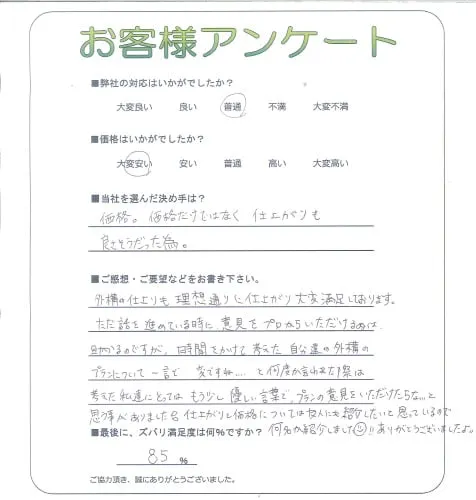 お客様アンケート
■弊社の対応はいかがでしたか?
大変良い 良い 普通 不満 大変不満
■価格はいかがでしたか?
大変安い 安い 普通 高い 大変高い
■当社を選んだ決め手は?
価格。価格だけではなく 仕上がりも
良さそうだった為。
■ご感想・ご要望などをお書き下さい。
外構の仕上りも 理想通りに仕上がり大変満足しております。
ただ話を進めている時に、意見をプロからいただけるのは、
助かるのですが、時間をかけて考えた 自分達の外構の
プランについて一言で 変ですね… と何度か言われた時は
考えた私達にとっては もう少し 優しい言葉で、プランの意見をいただけたらな…と
思う事がありました 仕上がりと価格については友人にも紹介したいと思っているので
■最後に、ズバリ満足度は何%ですか?
何名か紹介しました ありがとうございましたよ。
85 %
ご協力頂き、誠にありがとうございました。